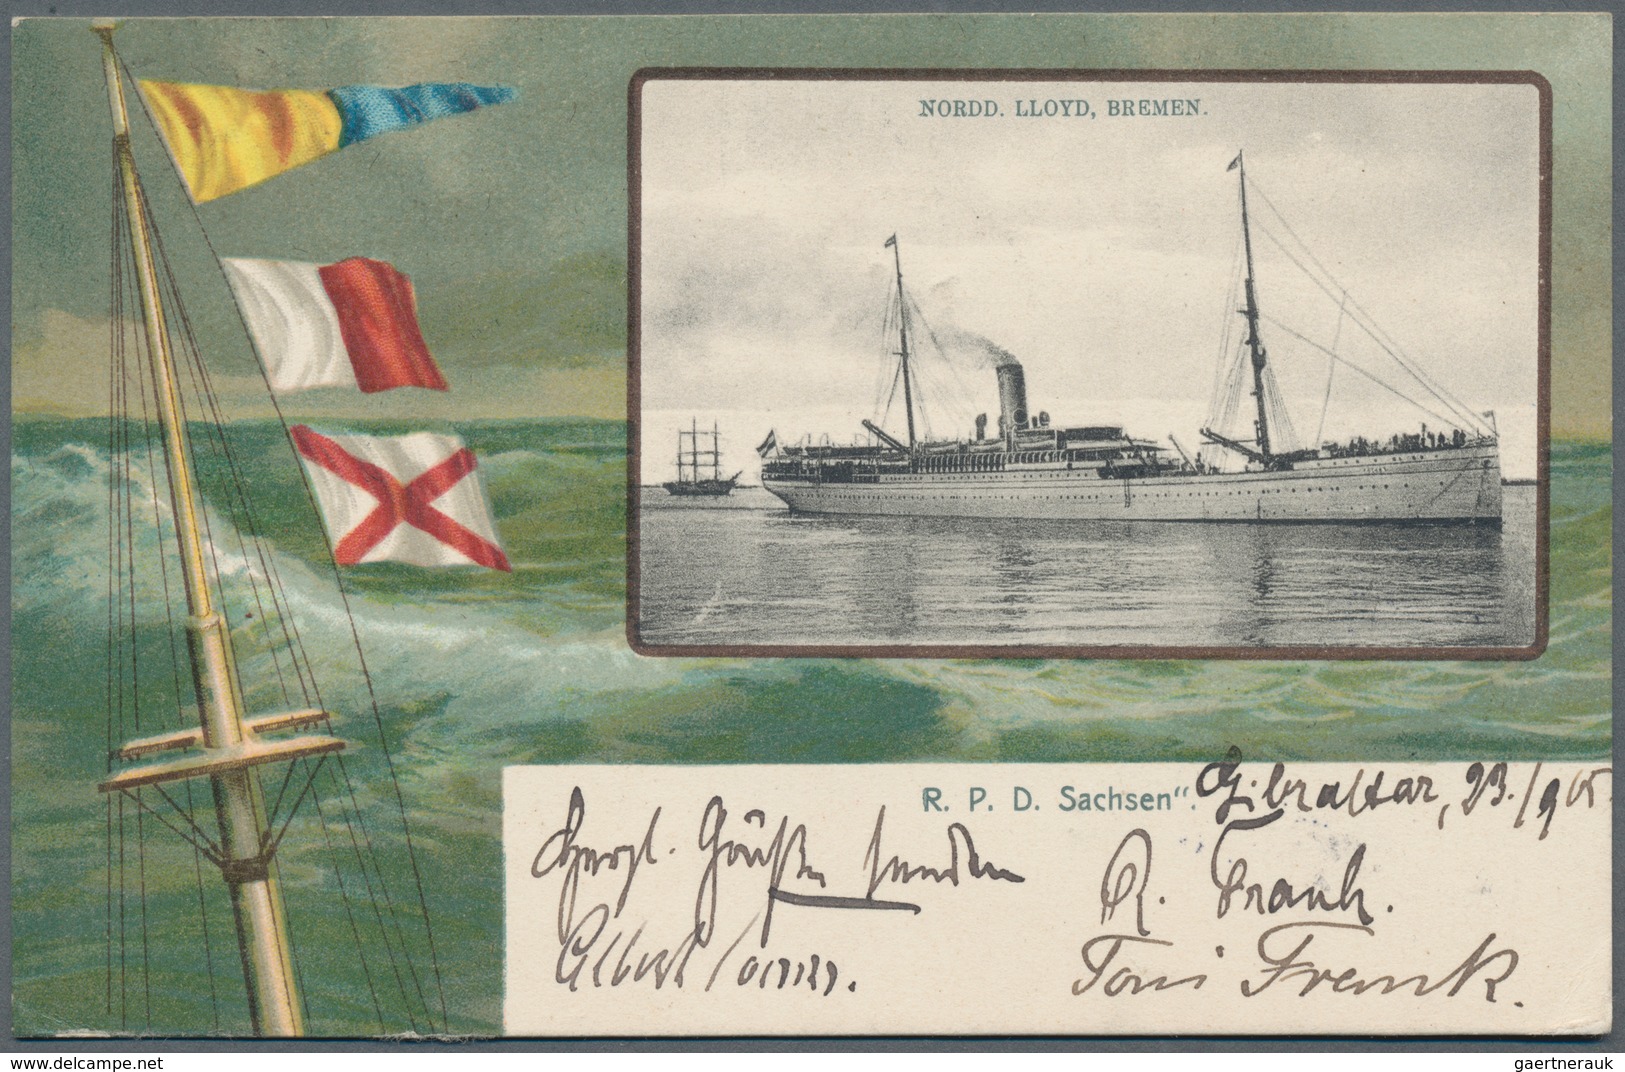 NORDD. LLOYD, BREMEN.
R. P. D. Sachsen“.
Gibraltar, 23./9 05.
Herzl. Grüße senden
Albert
R. Frank.
Toni Frenk.
gaertnerauk